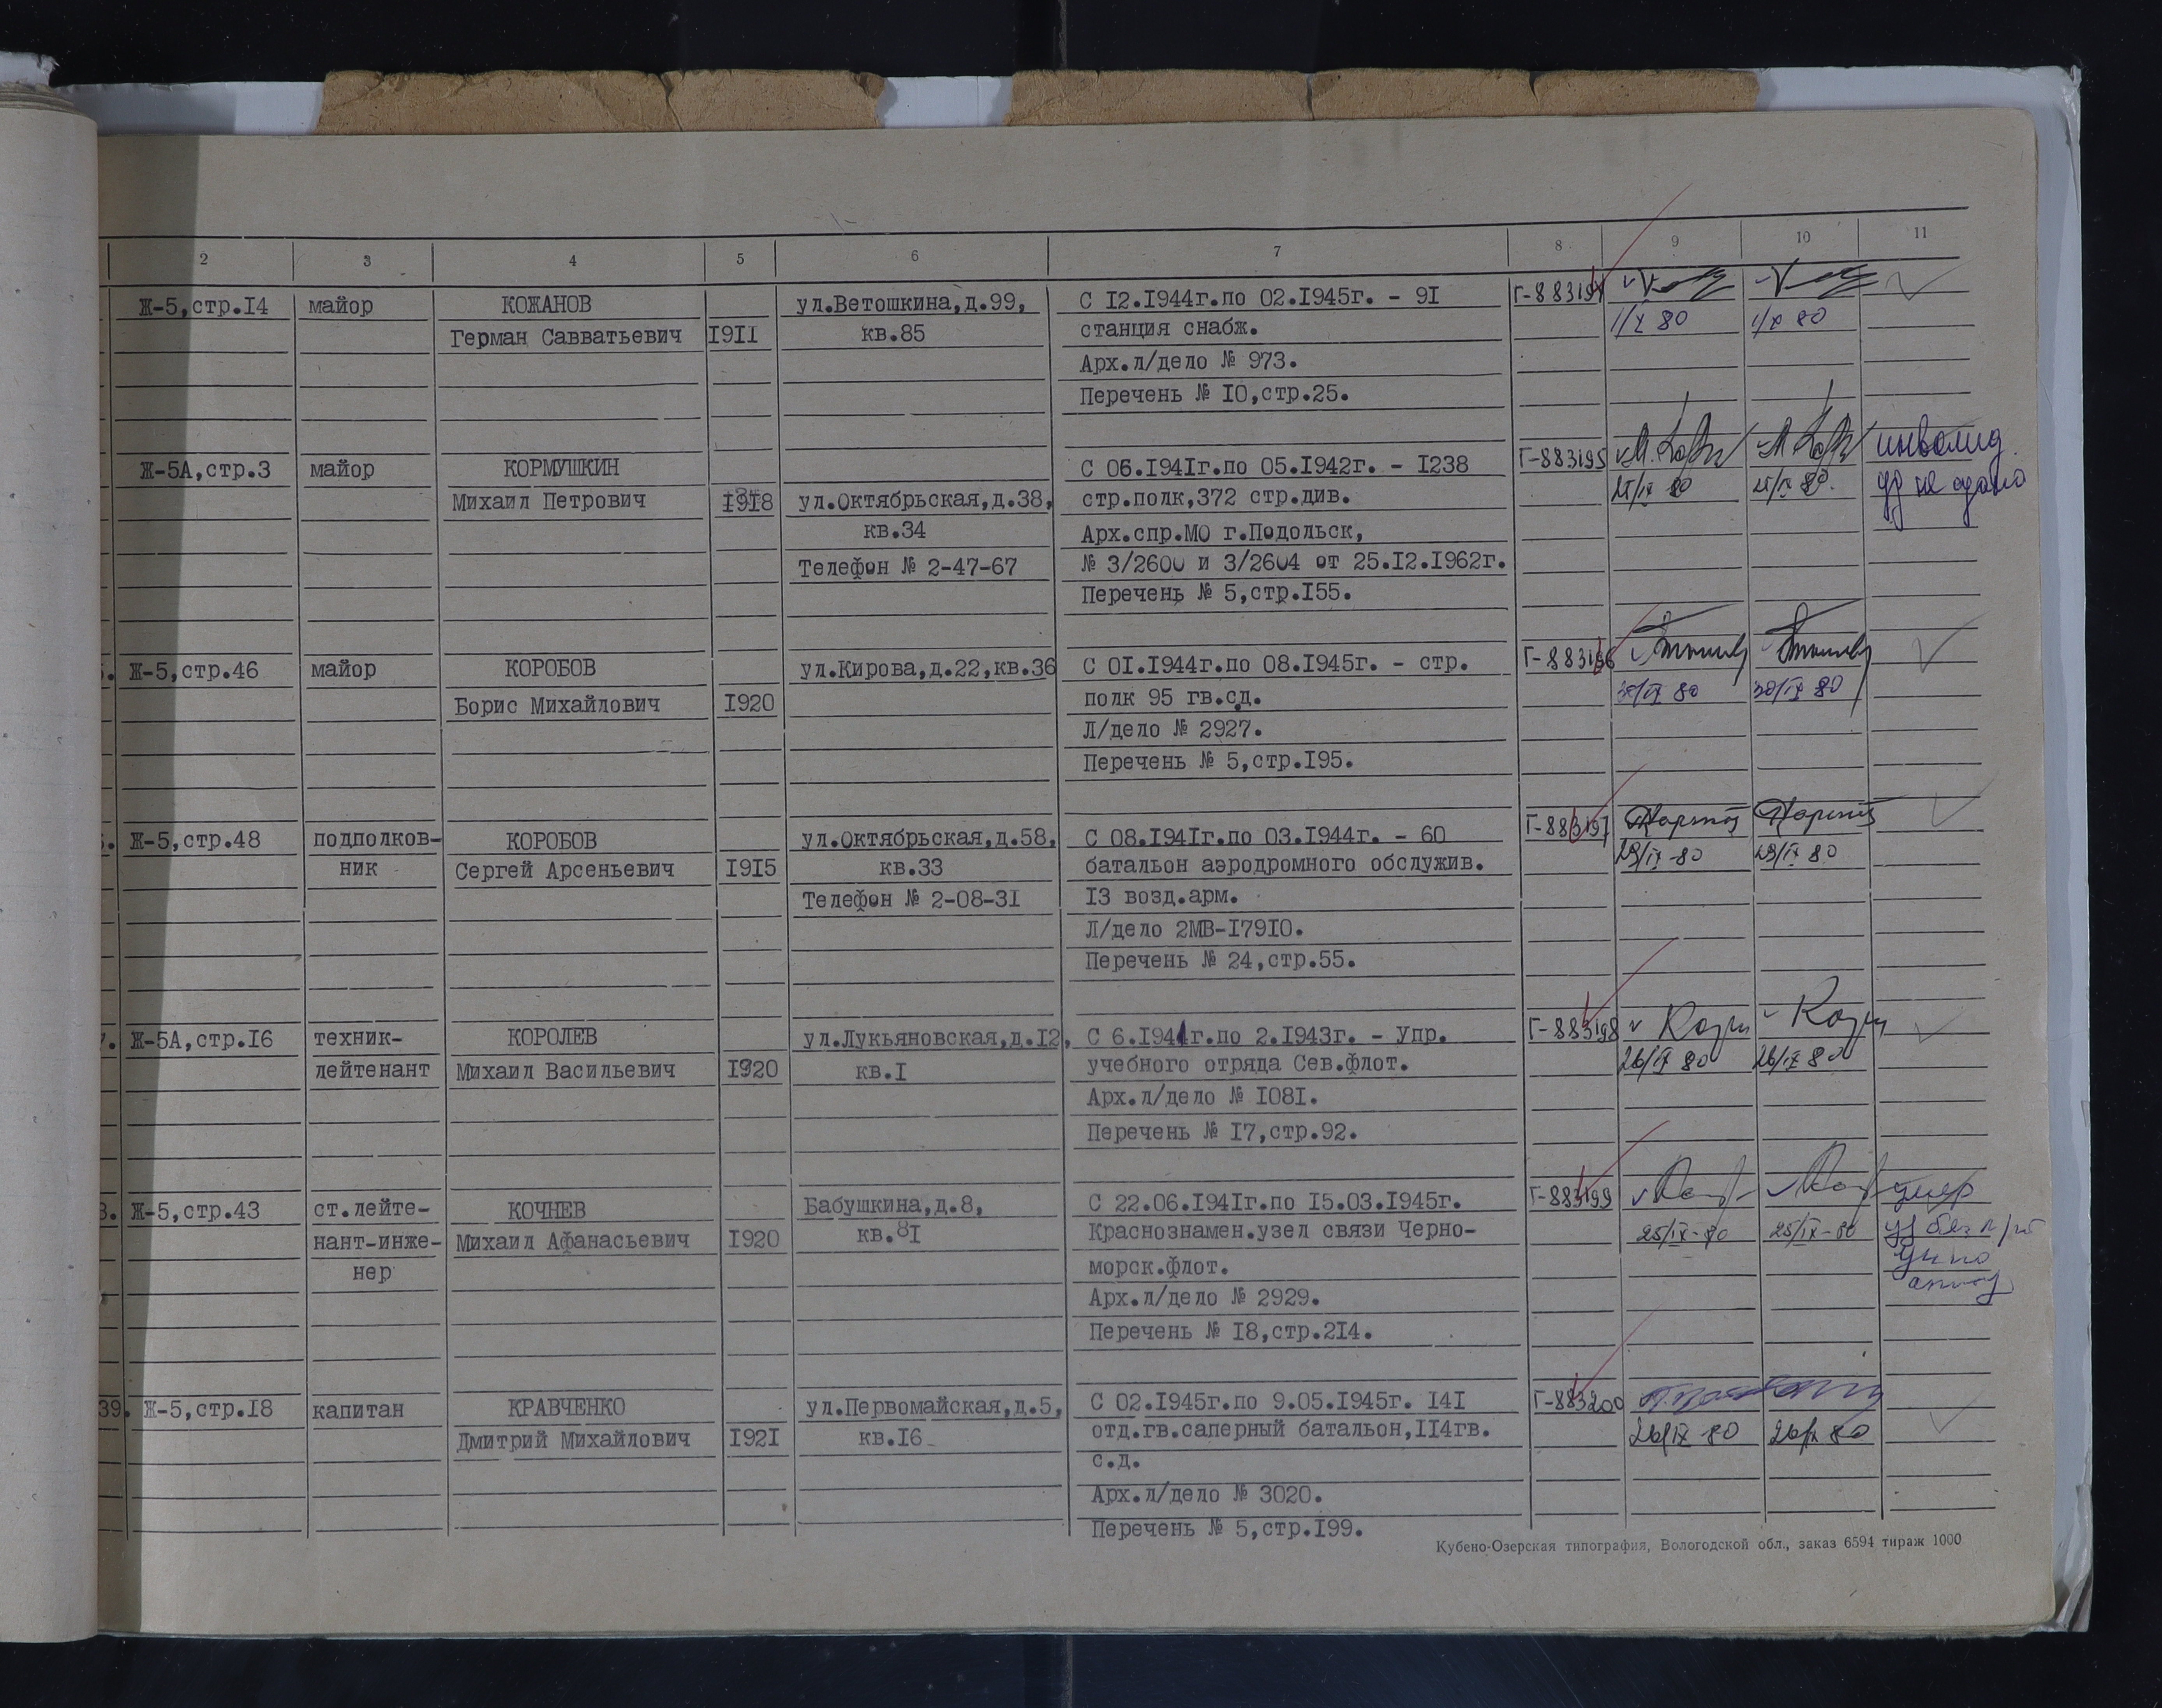 2 3 4 5 6 7 8 9 10 11
Ж-5,стр.I4 майор КОЖАНОВ ул.Ветошкина,д.99, С I2.I944г.по 02.I945г. - 9I Г-883194
Герман Савватьевич I9II кв.85 станция снабж. 1/X 80 1/X 80
Арх.л/дело № 973.
Перечень № I0,стр.25.
Ж-5А,стр.3 майор КОРМУШКИН С 06.I94Iг.по 05.I942г. - I238 Г-883195 инвалид
Михаил Петрович I9I8 ул.Октябрьская,д.38, стр.полк,372 стр.див. 25/IX 80 25/IX 80. уд не сдано
кв.34 Арх.спр.МО г.Подольск,
Телефон № 2-47-67 № 3/2600 и 3/2604 от 25.I2.I962г.
Перечень № 5,стр.I55.
Ж-5,стр.46 майор КОРОБОВ ул.Кирова,д.22,кв.36 С 0I.I944г.по 08.I945г. - стр. Г-883196
Борис Михайлович I920 полк 95 гв.сд. 30/IX 80 30/IX 80
Л/дело № 2927.
Перечень № 5,стр.I95.
Ж-5,стр.48 подполков- КОРОБОВ ул.Октябрьская,д.58, С 08.I94Iг.по 03.I944г. - 60 Г-883197
ник Сергей Арсеньевич I9I5 кв.33 батальон аэродромного обслужив. 29/IX-80 29/IX 80
Телефон № 2-08-3I I3 возд.арм.
Л/дело 2МВ-I79I0.
Перечень № 24,стр.55.
Ж-5А,стр.I6 техник- КОРОЛЕВ ул.Лукьяновская,д.I2, С 6.I941г.по 2.I943г. - Упр. Г-883198
лейтенант Михаил Васильевич I920 кв.I учебного отряда Сев.флот. 26/IX 80 26/IX 80
Арх.л/дело № I08I.
Перечень № I7,стр.92.
Ж-5,стр.43 ст.лейте- КОЧНЕВ Бабушкина,д.8, С 22.06.I94Iг.по I5.03.I945г. Г-883199 умер
нант-инже- Михаил Афанасьевич I920 кв.8I Краснознамен.узел связи Черно- 25/IX-80 25/IX-80
нер морск.флот.
Арх.л/дело № 2929.
Перечень № I8,стр.2I4.
39. Ж-5,стр.I8 капитан КРАВЧЕНКО ул.Первомайская,д.5, С 02.I945г.по 9.05.I945г. I4I Г-883200
Дмитрий Михайлович I92I кв.I6 отд.гв.саперный батальон,II4гв. 26/IX 80 26/IX 80
с.д.
Арх.л/дело № 3020.
Перечень № 5,стр.I99.
Кубено-Озерская типография, Вологодской обл., заказ 6594 тираж 1000